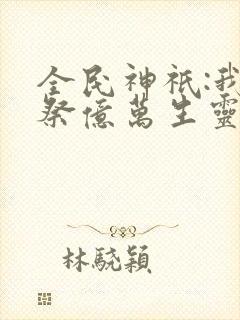 全民神祇:我
祭億萬生靈
林驍穎